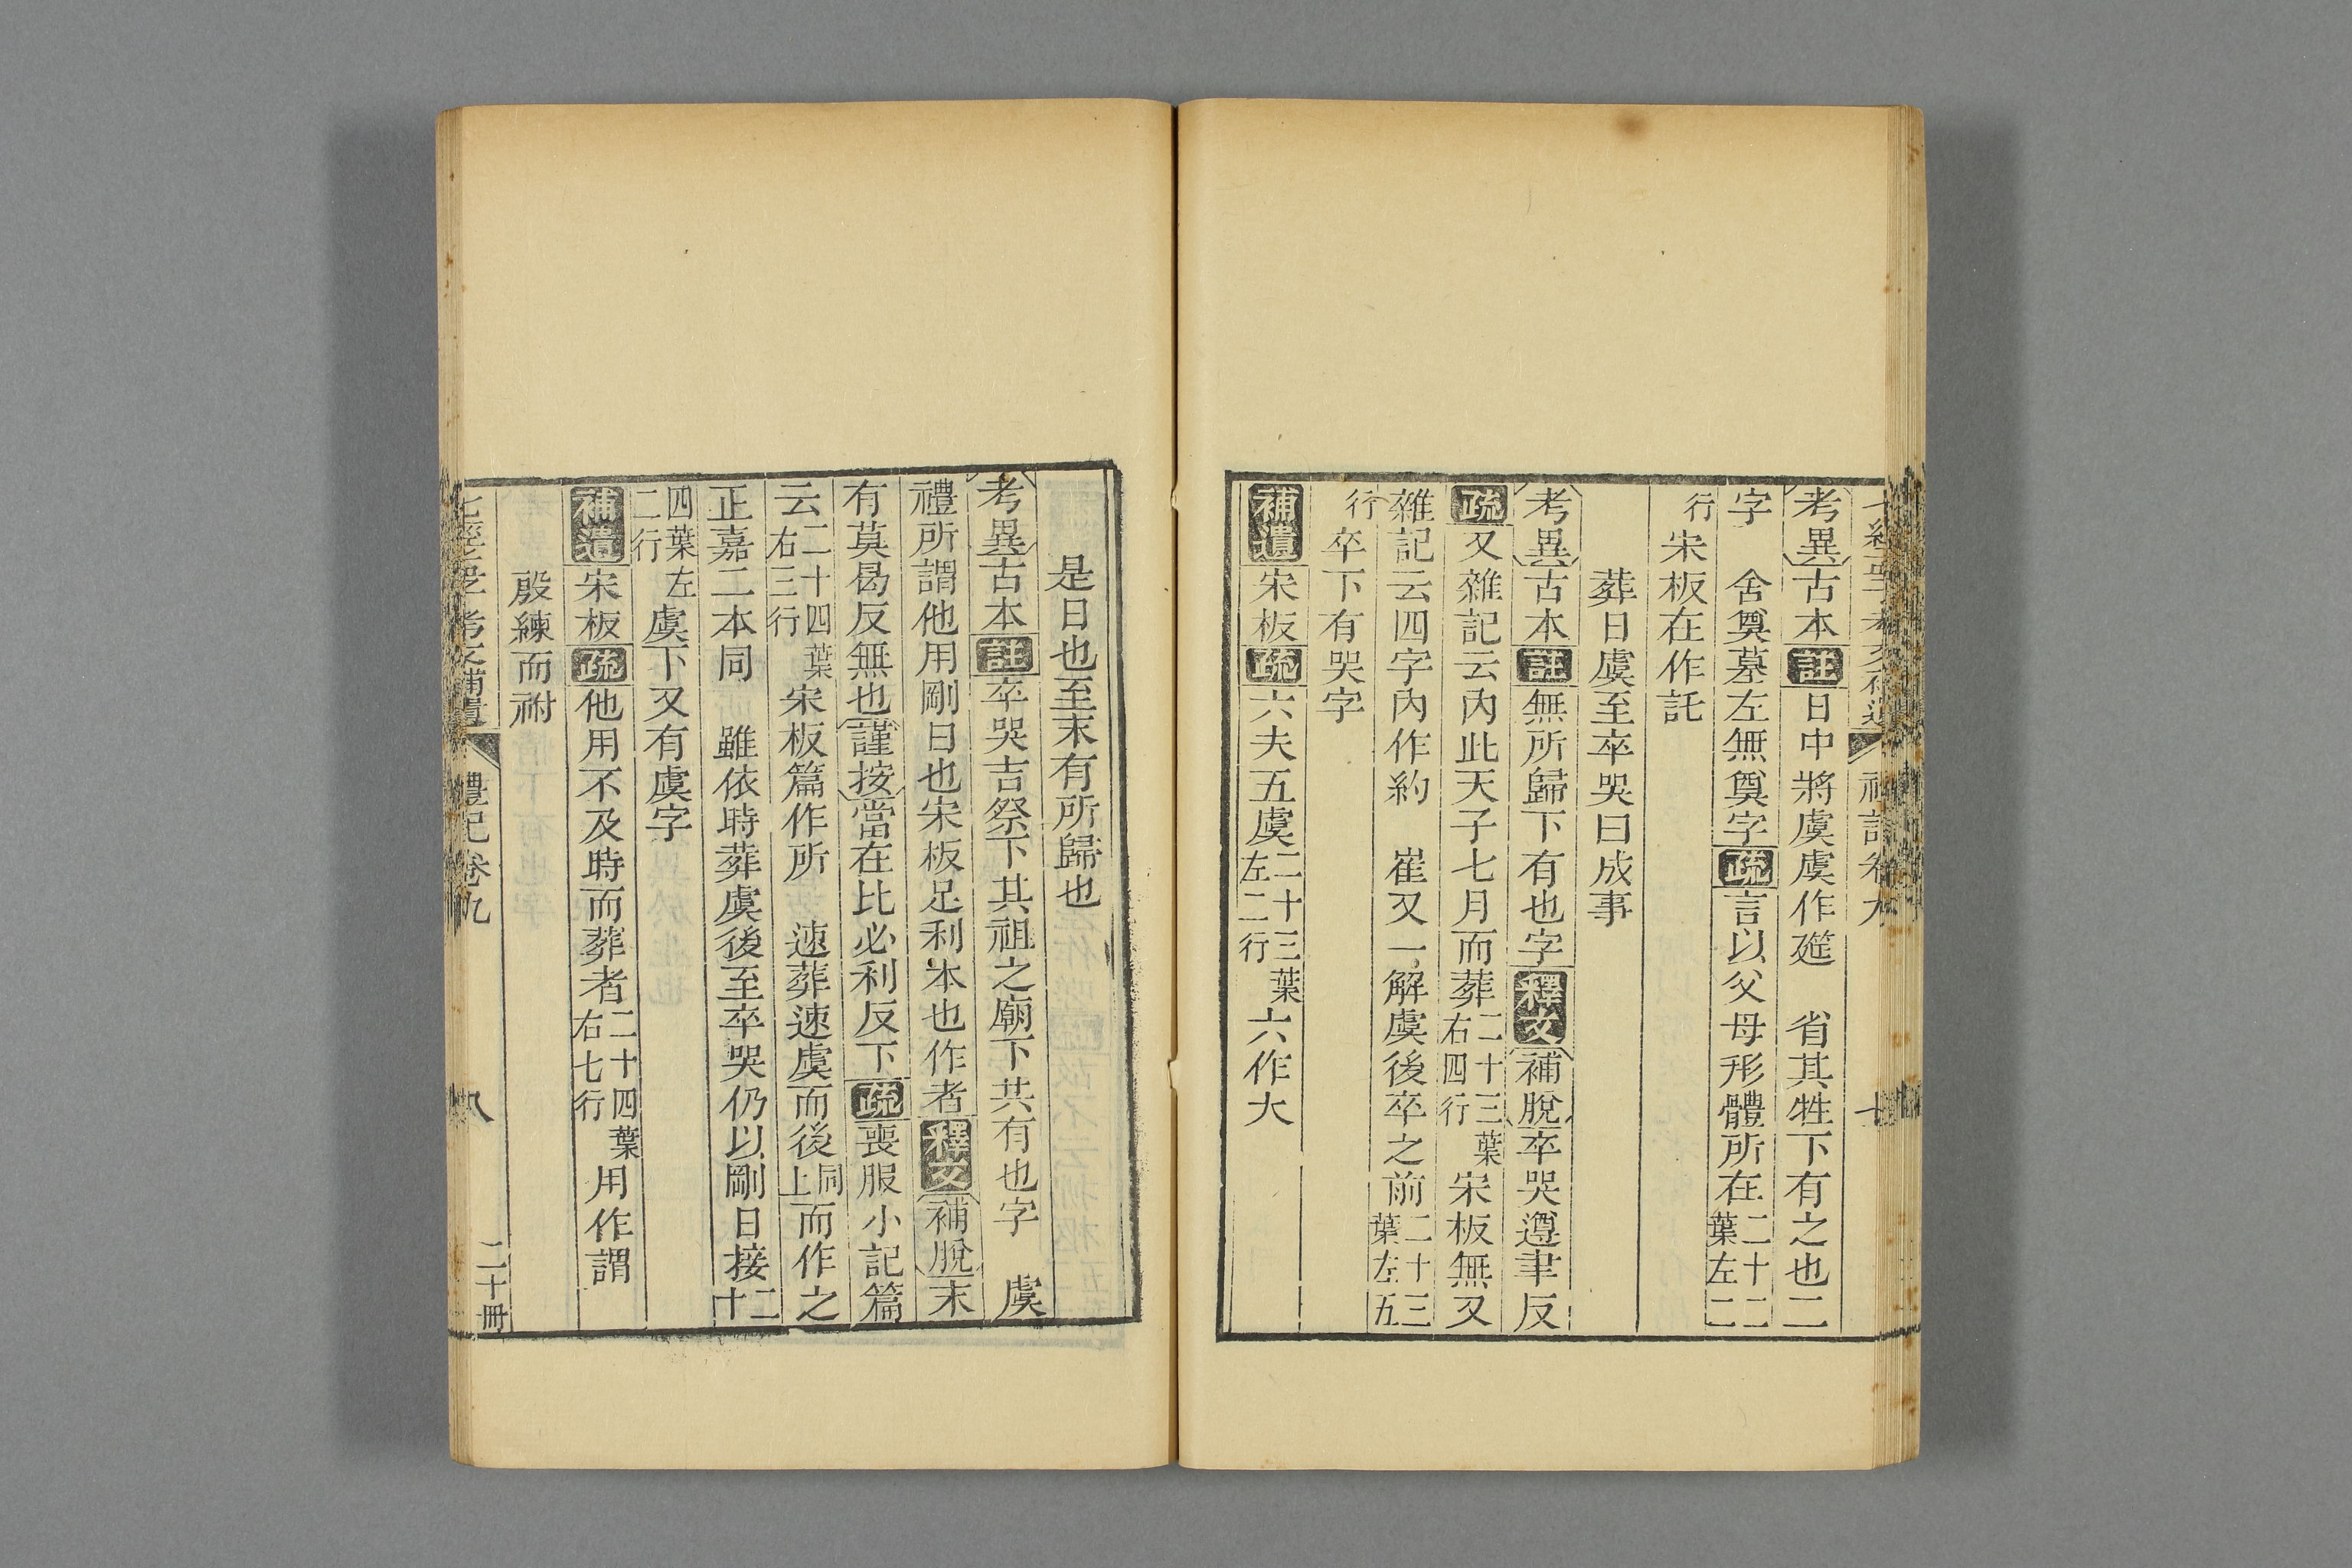 考異古本註日中將虞虞作筵　省其牲下有之也二
字　舍奠墓左無奠字疏言以父母形體所在二十二葉左二
行宋板在作託
葬日虞至卒哭曰成事
考異古本註無所歸下有也字釋文補脫卒哭遵聿反
疏又雜記云內此天子七月而葬二十三葉右四行宋板無又
雜記云四字內作約　崔又一解虞後卒之前二十三葉左五
行卒下有哭字
補遺宋板疏六夫五虞二十三葉左二行六作大
是日也至末有所歸也
考異古本註卒哭吉祭下其祖之廟下共有也字　虞
禮所謂他用剛日也宋板足利本也作者釋文補脫末
有莫曷反無也謹按當在比必利反下疏喪服小記篇
云二十四葉右三行宋板篇作所　速葬速虞而後同上而作之
正嘉二本同　雖依時葬虞後至卒哭仍以剛日接二十
四葉左二行虞下又有虞字
補遺宋板疏他用不及時而葬者二十四葉右七行用作謂
殷練而祔
七經孟子考文補遺　禮記卷九　八　二十冊